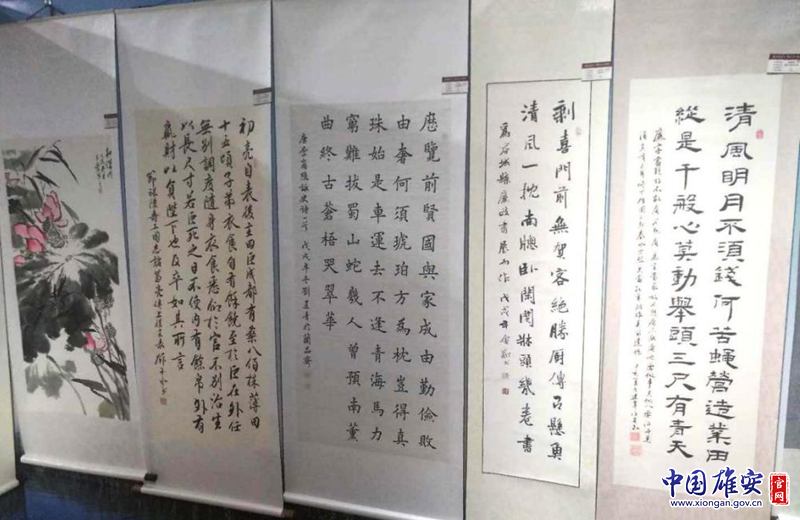 清風明月不須錢何苦蠅營造業田
縱是千般心莫動舉頭三尺有青天
剩喜門前無賀客絕勝廚傳有懸魚
清風一枕南牕臥閒閱牀頭幾卷書
為谷城縣廉政書展而作 戊戌年
歷覽前賢國與家成由勤儉敗
由奢何須琥珀方為枕豈得真
珠始是車運去不逢青海馬力
窮難拔蜀山蛇幾人曾預南薰
曲終古蒼梧哭翠華
唐李商隱詠史詩一首 戊戌年冬劉
初亮自表後主曰臣成都有桑八佰株薄田
十五頃子弟衣食自有餘饒至於臣在外任
無別調度隨身衣食悉仰於官不別治生
以長尺寸若臣死之日不使內有餘帛外有
贏財以負陛下也及卒如其所言
節錄陳壽三國志諸葛亮傳
中国雄安 官网
www.xiongan.gov.cn